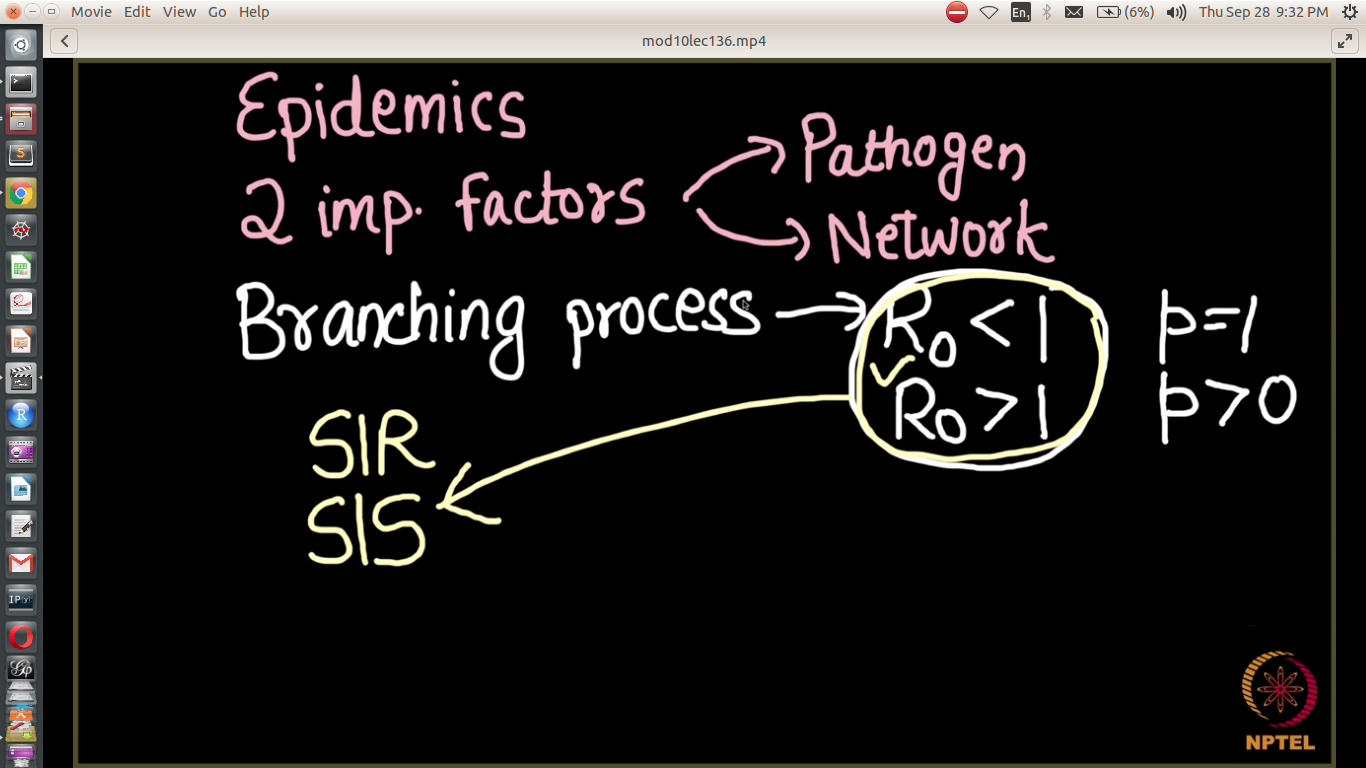 Movie Edit View Go Help En1 (6%) Thu Sep 28 9:32 PM
mod10lec136.mp4
Epidemics
2 imp. factors → Pathogen
→ Network
Branching process → R0 < 1 p=1
✓ R0 > 1 p>0
SIR
SIS
NPTEL